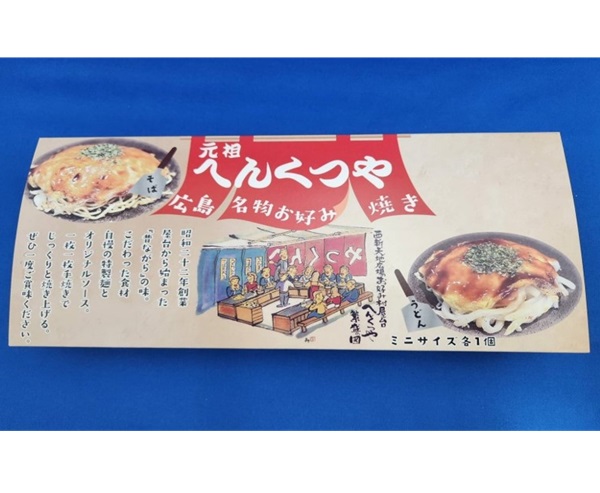 元祖
へんくつや
広島 名物お好み 焼き
そば
昭和二十二年創業
屋台から始まった
「昔ながら」の味。
こだわった食材
自慢の特製麺と
オリジナルソース。
一枚一枚手焼きで
じっくりと焼き上げる。
ぜひ一度ご賞味ください。
へんくつや
西新天地広場お好み村屋台
へんくつや
うどん
ミニサイズ各1個